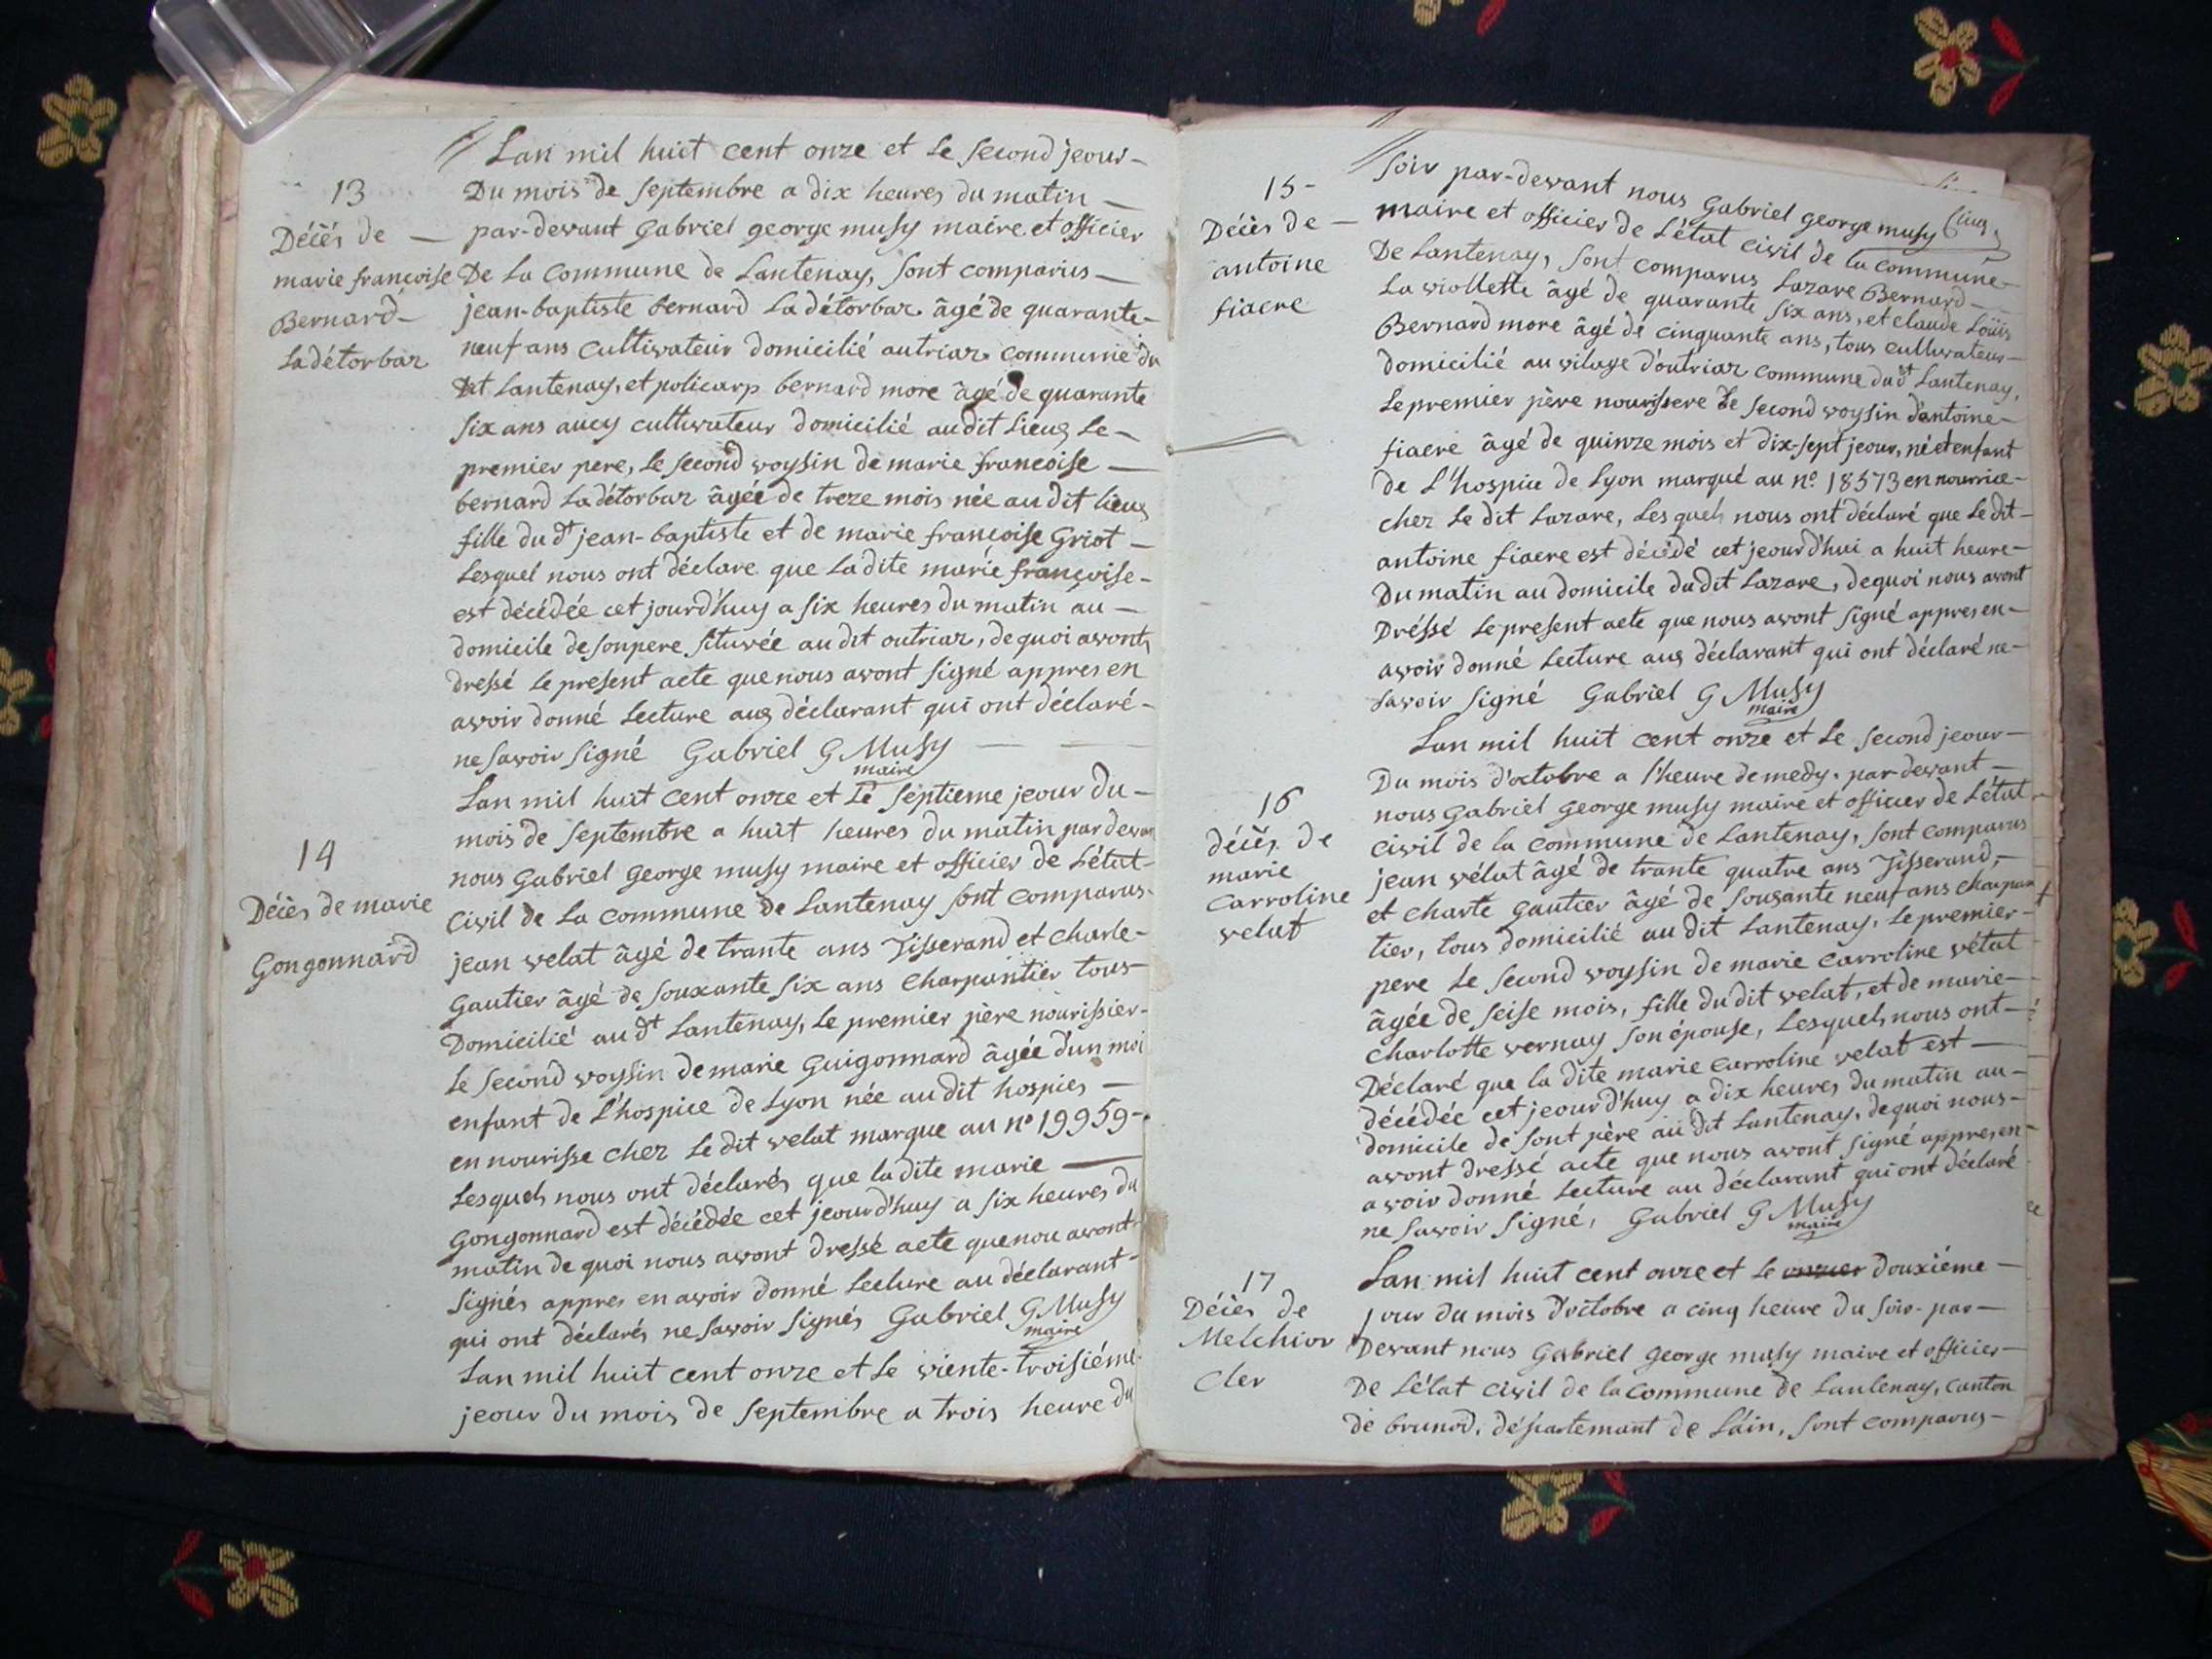 Lan mil huit cent onze et le second jeour-
13
Du mois de septembre a dix heures du matin -
Décès de -
par-devant Gabriel george musy maire et officier
marie françoise
De La Commune de Lantenay, sont comparus -
Bernard-
jean-baptiste bernard La détorbaz âgé de quarante-
Ladétorbaz
neuf ans cultivateur domicilié autriaz commune du
dit Lantenay, et policarp bernard more âgé de quarante
six ans aucy cultivateur domicilié audit Lieux Le -
premier pere, Le second voysin de marie francoise -
bernard Ladétorbaz âgée de treze mois née audit lieux
fille du dt jean-baptiste et de marie françoise Griot -
Lesquel nous ont déclare que Ladite marie françoise -
est décédée cet jourd'huy a six heures du matin au -
domicile de sonpere situvée au dit outriaz, de quoi avont
dressé Le present acte quenous avont signé appres en
avoir donné Lecture aux déclarant qui ont déclaré -
ne savoir signé Gabriel G Musy
maire
Lan mil huit cent onze et Le septieme jeour du -
mois de septembre a huit heures du matin par devan
14
nous Gabriel george musy maire et officier de L'état-
Décès de marie
Civil de La commune de Lantenay sont comparus-
Gongonnard
jean velat âgé de trante ans Tisserand et charle-
Gautier âgé de souxante six ans Charpantier tous-
Domicilié au dt Lantenay, Le premier père nourissier-
Le second voysin de marie Guigonnard âgée d'un moi
enfant de L'hospice de Lyon née au dit hospies -
en nourisse chez Le dit velat marque au n° 19959-
Lesquels nous ont déclarés que ladite marie -
Gongonnard est décédée cet jeourd'huy a six heures du
matin de quoi nous avont dressé acte quenou avont
signés appres en avoir donné Lecture au déclarant-
qui ont déclarés ne savoir signés Gabriel G Musy
maire
Lan mil huit cent onze et Le viente-troisiéme
jeour du mois de septembre a trois heure du
soir par-devant nous Gabriel george musy
15-
maire et officier de L'état civil de la commune-
Décès de -
De Lantenay, sont comparus Lazare Bernard-
antoine
La viollette âgé de quarante six ans, et claude Loüis
fiacre
Bernard more âgé de cinquante ans, tous cultivateur-
domicilié au vilage d'outriaz commune dudt Lantenay,
Lepremier père nourissere Le second voysin d'antoine-
fiacre âgé de quinze mois et dix-sept jeour, né et enfant
de L'hospice de Lyon marqué au n° 18573 en nourrice-
chez Le dit Lazare, Lesquels nous ont déclaré que Le dit-
antoine fiacre est décédé cet jeourd'hui a huit heure-
Du matin au domicile dudit Lazare, dequoi nous avont
Dréssé Lepresent acte que nous avont signé appres en-
avoir donné Lecture aux déclarant qui ont déclaré ne-
savoir signé Gabriel G Musy
maire
Lan mil huit cent onze et Le second jeour-
Du mois d'octobre a l'heure de medy. par-devant -
16
nous Gabriel George musy maire et officier de L'état
décès de
civil de la commune de Lantenay, sont comparus
marie
jean vélat âgé de trante quatre ans Tisserand,-
Carroline
et charle Gautier âgé de souxante neuf ans charpan
velat
tier, tous domicilié au dit Lantenay, Le premier-
pere Le second voysin de marie carroline vélat
âgée de seise mois, fille du dit velat, et de marie-
charlotte vernay son épouse, Lesquels nous ont-
Déclaré que la dite marie carroline velat est -
décédée cet jeourd'huy a dix heures du matin au-
domicile de sont père au dit Lantenay, dequoi nous-
avont dressé acte que nous avont signé appres en-
avoir donné Lecture au déclarant qui ont déclaré
ne savoir signé, Gabriel G Musy
maire
17
Lan mil huit cent onze et Le douxiéme -
Décès de
jour du mois d'octobre a cinq heure du soir-par-
Melchior
Devant nous Gabriel George musy maire et officier-
Cler
De L'élat civil de la commune de Lantenay, canton
de brunod, département de L'ain, sont comparus-